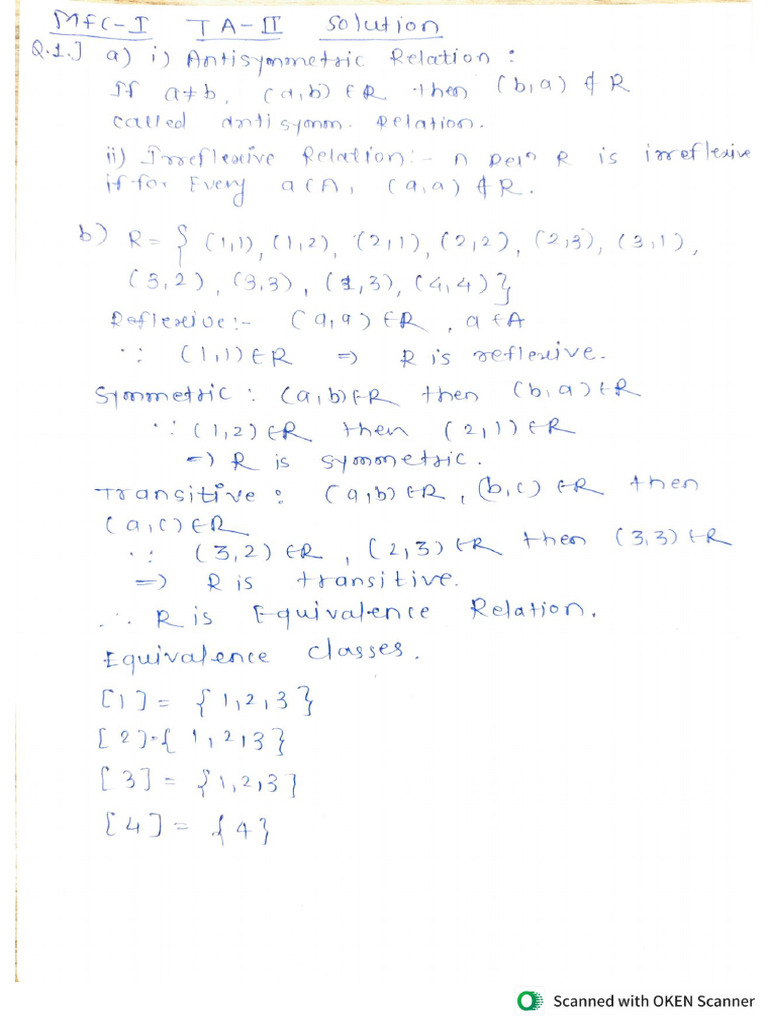 MFC-I TA-II Solution
Q.1.] a) i) Antisymmetric Relation :
If a≠b, (a,b) ∈ R then (b,a) ∉ R
called antisymm. Relation.
ii) Irreflexive Relation:- A Relⁿ R is irreflexive
if for Every a∈A, (a,a) ∉ R.
b) R = { (1,1), (1,2), (2,1), (2,2), (2,3), (3,1),
(3,2), (3,3), (1,3), (4,4) }
Reflexive:- (a,a) ∈ R , a ∈ A
∵ (1,1) ∈ R ⇒ R is reflexive.
Symmetric : (a,b) ∈ R then (b,a) ∈ R
∵ (1,2) ∈ R then (2,1) ∈ R
⇒ R is symmetric.
Transitive : (a,b) ∈ R , (b,c) ∈ R then
(a,c) ∈ R
∵ (3,2) ∈ R , (2,3) ∈ R then (3,3) ∈ R
⇒ R is transitive.
∴ R is Equivalence Relation.
Equivalence classes.
[1] = {1,2,3}
[2] = {1,2,3}
[3] = {1,2,3}
[4] = {4}
Scanned with OKEN Scanner